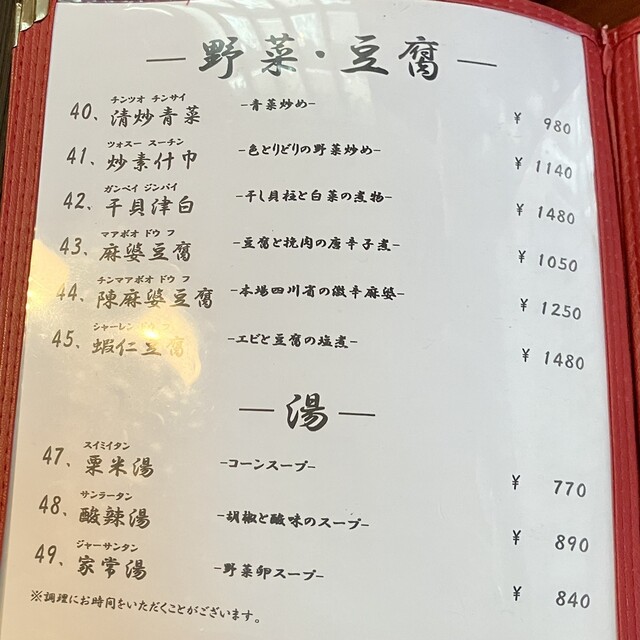 — 野菜・豆腐 —
チンツオ チンサイ
40、清炒青菜 -青菜炒め- ¥ 980
ツォスー スーチン
41、炒素什巾 -色とりどりの野菜炒め- ¥ 1140
ガンベイ ジンバイ
42、干貝津白 -干し貝柱と白菜の煮物- ¥ 1480
マアボオ ドウ フ
43、麻婆豆腐 -豆腐と挽肉の唐辛子煮- ¥ 1050
チンマアボオ ドウ フ
44、陳麻婆豆腐 -本場四川省の激辛麻婆- ¥ 1250
シャーレン フ
45、蝦仁豆腐 -エビと豆腐の塩煮- ¥ 1480
— 湯 —
スイミイタン
47、粟米湯 -コーンスープ- ¥ 770
サンラータン
48、酸辣湯 -胡椒と酸味のスープ- ¥ 890
ジャーサンタン
49、家常湯 -野菜卵スープ- ¥ 840
※調理にお時間をいただくことがございます。